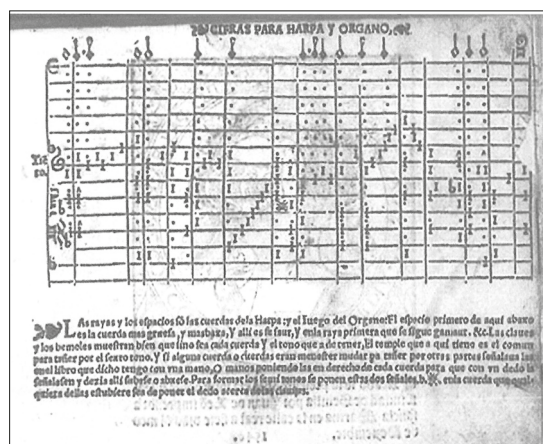 CIFRAS PARA HARPA Y ORGANO,
LAs rayas y los espacios sõ las cuerdas dela Harpa: y el Iuego del Organo: El espacio primero de aqui abaxo
es la cuerda mas gruesa, y mas baxa, Y alli es fe faut, Y enla raya primera que se sigue gamaut. &c. Las claues
y los bemoles muestran bien que sino sea cada cuerda Y el tono que a de tener, El temple que a qui tiene es el comun
para tañer por el sexto tono. Y si alguna cuerda o cuerdas erã menester mudar pa tañer por otras partes señalaua las
enel libro que dicho tengo con vna mano, O manos poniendo las en derecho de cada cuerda para que con vn dedo la
señalasen y dezia alli subase o abaxese. Para formar los semitonos se ponen estas dos señales. b. enla cuerda que qual
quiera dellas estubiere sea de poner el dedo acerca de las clauijas.